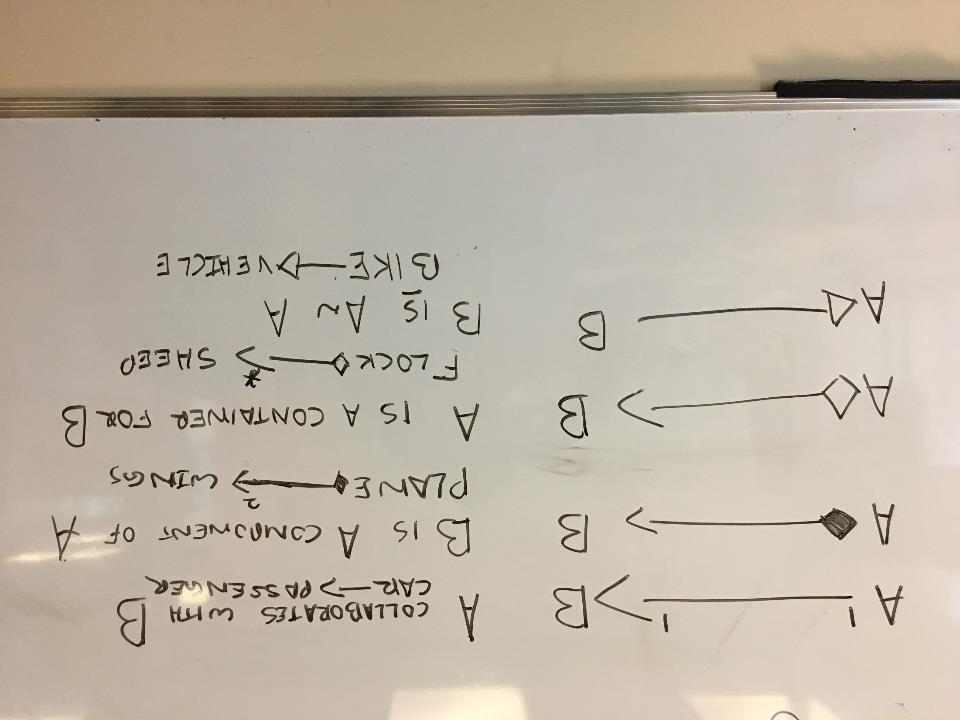 A 1 1 B
A COLLABORATES WITH B
CAR PASSENGER
A B
B IS A COMPONENT OF A
PLANE 2 WINGS
A B
A IS A CONTAINER FOR B
FLOCK * SHEEP
A B
B IS AN A
BIKE VEHICLE